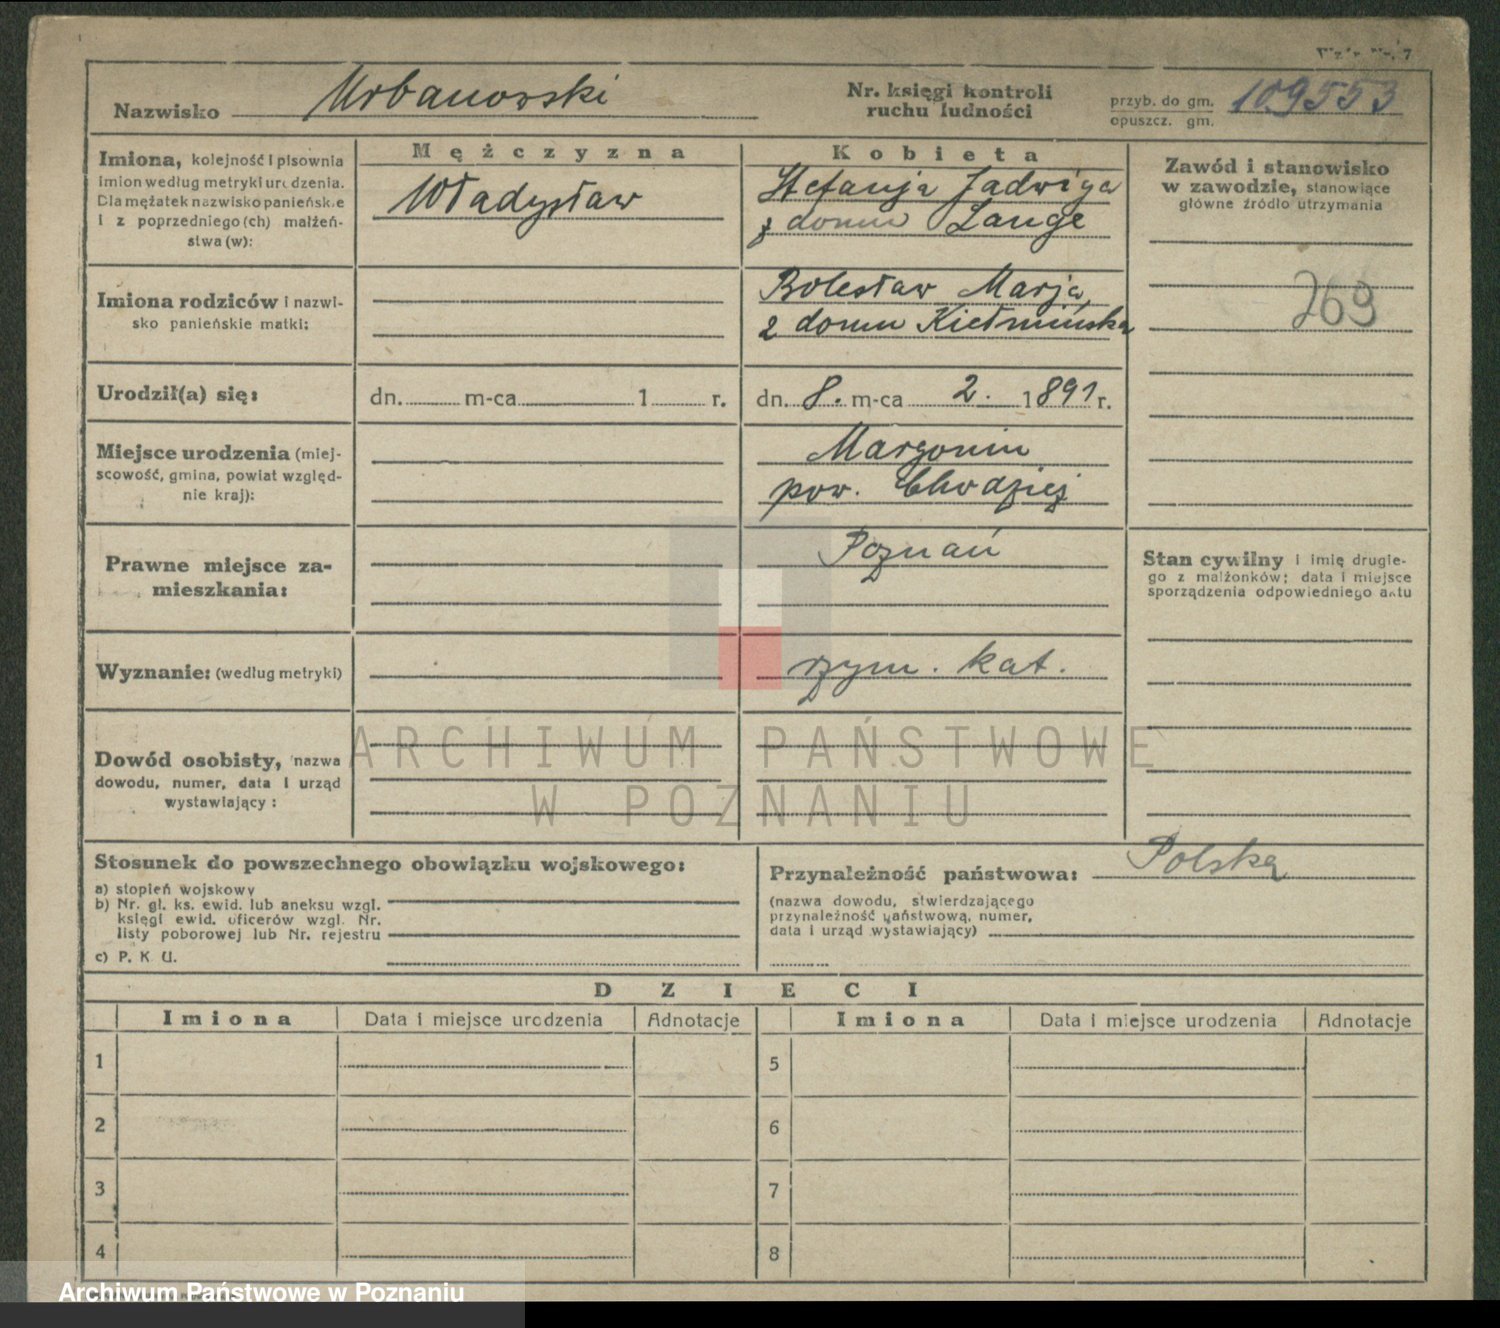 Nazwisko Urbanowski
Nr. księgi kontroli
ruchu ludności
przyb. do gm.
opuszcz. gm.
109553
Imiona, kolejność i pisownia
imion według metryki urodzenia.
Dla mężatek nazwisko panieńskie
i z poprzedniego (ch) małżeń-
stwa (w):
Mężczyzna
Władysław
Kobieta
Stefanja Jadwiga
z domu Lange
Zawód i stanowisko
w zawodzie, stanowiące
główne źródło utrzymania
769
Imiona rodziców i nazwi-
sko panieńskie matki:
Bolesław Marja,
z domu Kiełmińska
Urodził(a) się:
dn. m-ca 1 r.
dn. 8. m-ca 2. 1891 r.
Miejsce urodzenia (miej-
scowość, gmina, powiat względ-
nie kraj):
Margonin
pow. Chodzież
Prawne miejsce za-
mieszkania:
Poznań
Stan cywilny i imię drugie-
go z małżonków; data i miejsce
sporządzenia odpowiedniego aktu
Wyznanie: (według metryki)
rzym. kat.
Dowód osobisty, nazwa
dowodu, numer, data i urząd
wystawiający:
ARCHIWUM PAŃSTWOWE
W POZNANIU
Stosunek do powszechnego obowiązku wojskowego:
a) stopień wojskowy
b) Nr. gł. ks. ewid. lub aneksu wzgl.
księgi ewid. oficerów wzgl. Nr.
listy poborowej lub Nr. rejestru
c) P. K. U.
Przynależność państwowa: Polska
(nazwa dowodu, stwierdzającego
przynależność państwową, numer,
data i urząd wystawiający)
DZIECI
Imiona Data i miejsce urodzenia Adnotacje Imiona Data i miejsce urodzenia Adnotacje
1 5
2 6
3 7
4 8
Archiwum Państwowe w Poznaniu